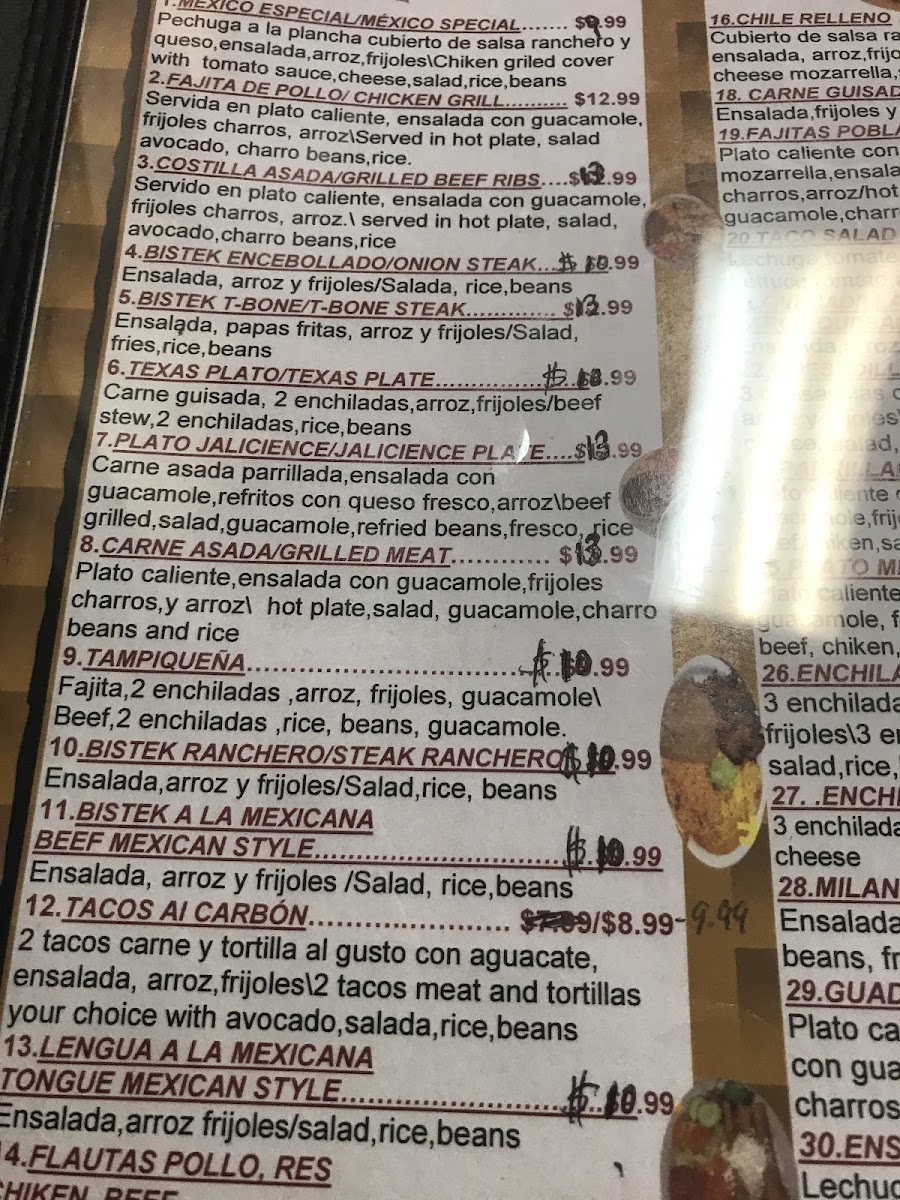 1.MEXICO ESPECIAL/MÉXICO SPECIAL....... $9.99
Pechuga a la plancha cubierto de salsa ranchero y
queso,ensalada,arroz,frijoles\Chiken griled cover
with tomato sauce,cheese,salad,rice,beans
2.FAJITA DE POLLO/ CHICKEN GRILL.......... $12.99
Servida en plato caliente, ensalada con guacamole,
frijoles charros, arroz\Served in hot plate, salad
avocado, charro beans,rice.
3.COSTILLA ASADA/GRILLED BEEF RIBS....$13.99
Servido en plato caliente, ensalada con guacamole,
frijoles charros, arroz.\ served in hot plate, salad,
avocado,charro beans,rice
4.BISTEK ENCEBOLLADO/ONION STEAK...$ 10.99
Ensalada, arroz y frijoles/Salada, rice,beans
5.BISTEK T-BONE/T-BONE STEAK............. $13.99
Ensalada, papas fritas, arroz y frijoles/Salad,
fries,rice,beans
6.TEXAS PLATO/TEXAS PLATE...............$ .99
Carne guisada, 2 enchiladas,arroz,frijoles/beef
stew,2 enchiladas,rice,beans
7.PLATO JALICIENCE/JALICIENCE PLATE....$13.99
Carne asada parrillada,ensalada con
guacamole,refritos con queso fresco,arroz\beef
grilled,salad,guacamole,refried beans,fresco, rice
8.CARNE ASADA/GRILLED MEAT............ $13.99
Plato caliente,ensalada con guacamole,frijoles
charros,y arroz\ hot plate,salad, guacamole,charro
beans and rice
9.TAMPIQUEÑA...............................$ 10.99
Fajita,2 enchiladas ,arroz, frijoles, guacamole\
Beef,2 enchiladas ,rice, beans, guacamole.
10.BISTEK RANCHERO/STEAK RANCHERO$ 10.99
Ensalada,arroz y frijoles/Salad,rice, beans
11.BISTEK A LA MEXICANA
BEEF MEXICAN STYLE...........................$ 10.99
Ensalada, arroz y frijoles /Salad, rice,beans
12.TACOS Al CARBÓN...................... $7.99/$8.99-9.99
2 tacos carne y tortilla al gusto con aguacate,
ensalada, arroz,frijoles\2 tacos meat and tortillas
your choice with avocado,salada,rice,beans
13.LENGUA A LA MEXICANA
TONGUE MEXICAN STYLE.......................$ 10.99
Ensalada,arroz frijoles/salad,rice,beans
14.FLAUTAS POLLO, RES
CHIKEN, BEEF
16.CHILE RELLENO
Cubierto de salsa ra
ensalada, arroz,frijo
cheese mozarrella,
18. CARNE GUISAD
Ensalada,frijoles y
19.FAJITAS POBLA
Plato caliente con
mozarrella,ensala
charros,arroz/hot
guacamole,charr
20.TACO SALAD
Lechuga tomate
beef, chiken,
26.ENCHILA
3 enchilada
frijoles\3 en
salad,rice,
27. .ENCHI
3 enchilada
cheese
28.MILAN
Ensalada
beans, fr
29.GUAD
Plato ca
con gua
charros
30.ENS
Lechug